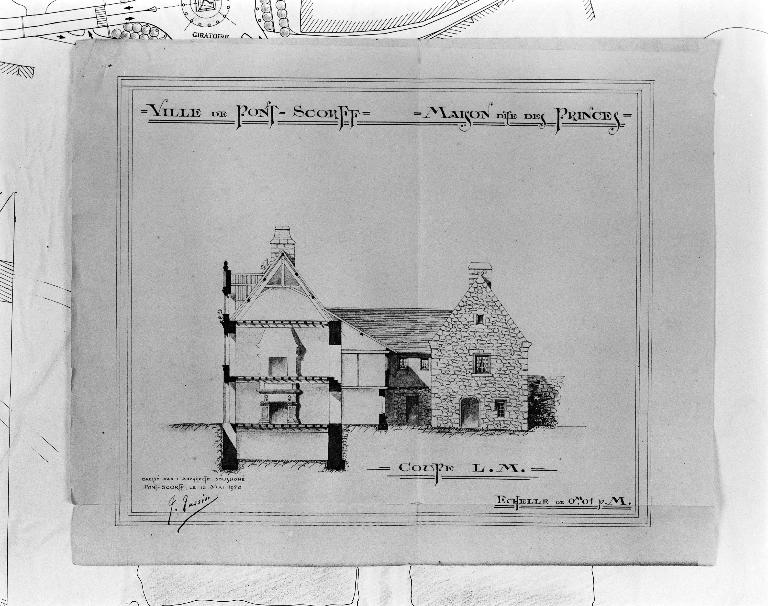 GIRATOIRE
=VILLE DE PONT-SCORFF= =MAISON DITE DES PRINCES=
COUPE L.M.
DRESSÉ PAR L'ARCHITECTE SOUSSIGNÉ
PONT-SCORFF, LE 12 MAI
ECHELLE DE 0m01 P.M.